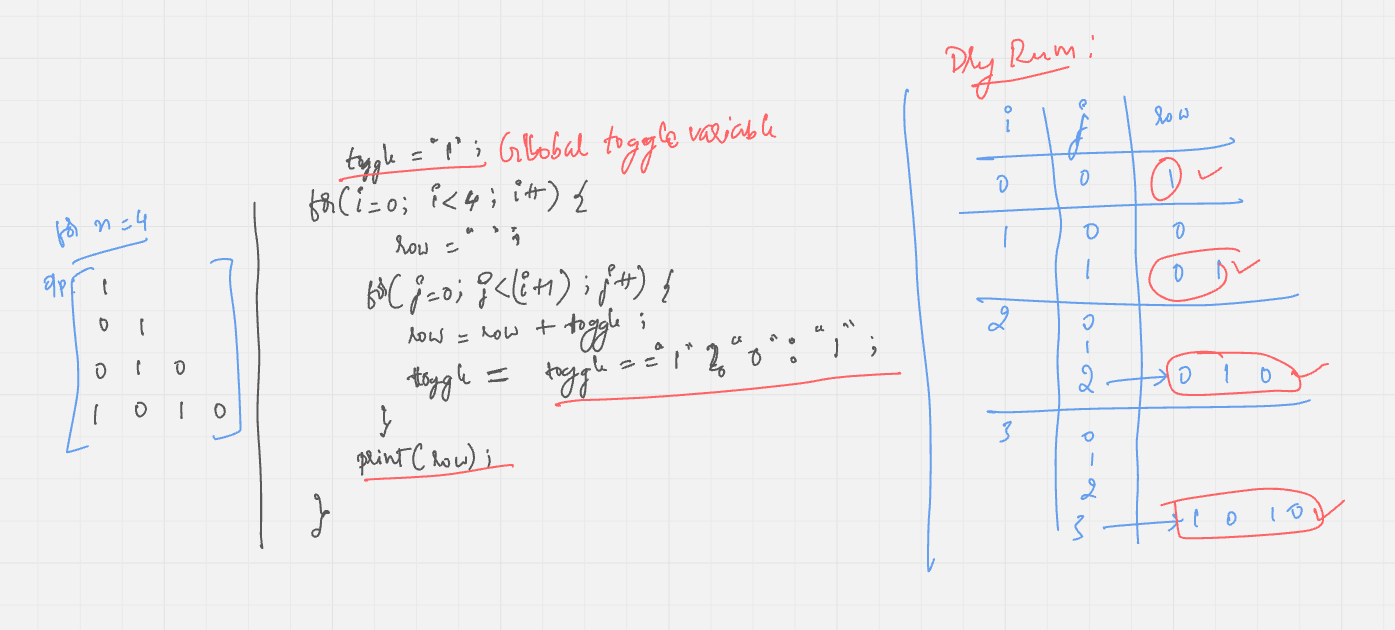 for n = 4
o/p
1
0 1
0 1 0
1 0 1 0
toggle = "1" ; Gllobal toggle variable
for(i=0; i<4; i++) {
row = " " ;
for( j=0; j<(i+1) ; j++) {
row = row + toggle ;
toggle = toggle == "1" ? "0" : "1" ;
}
print( row) ;
}
Dry Run :
i j row
0 0 1
1 0 0
1 0 1
2 0
1
2 0 1 0
3 0
1
2
3 1 0 1 0